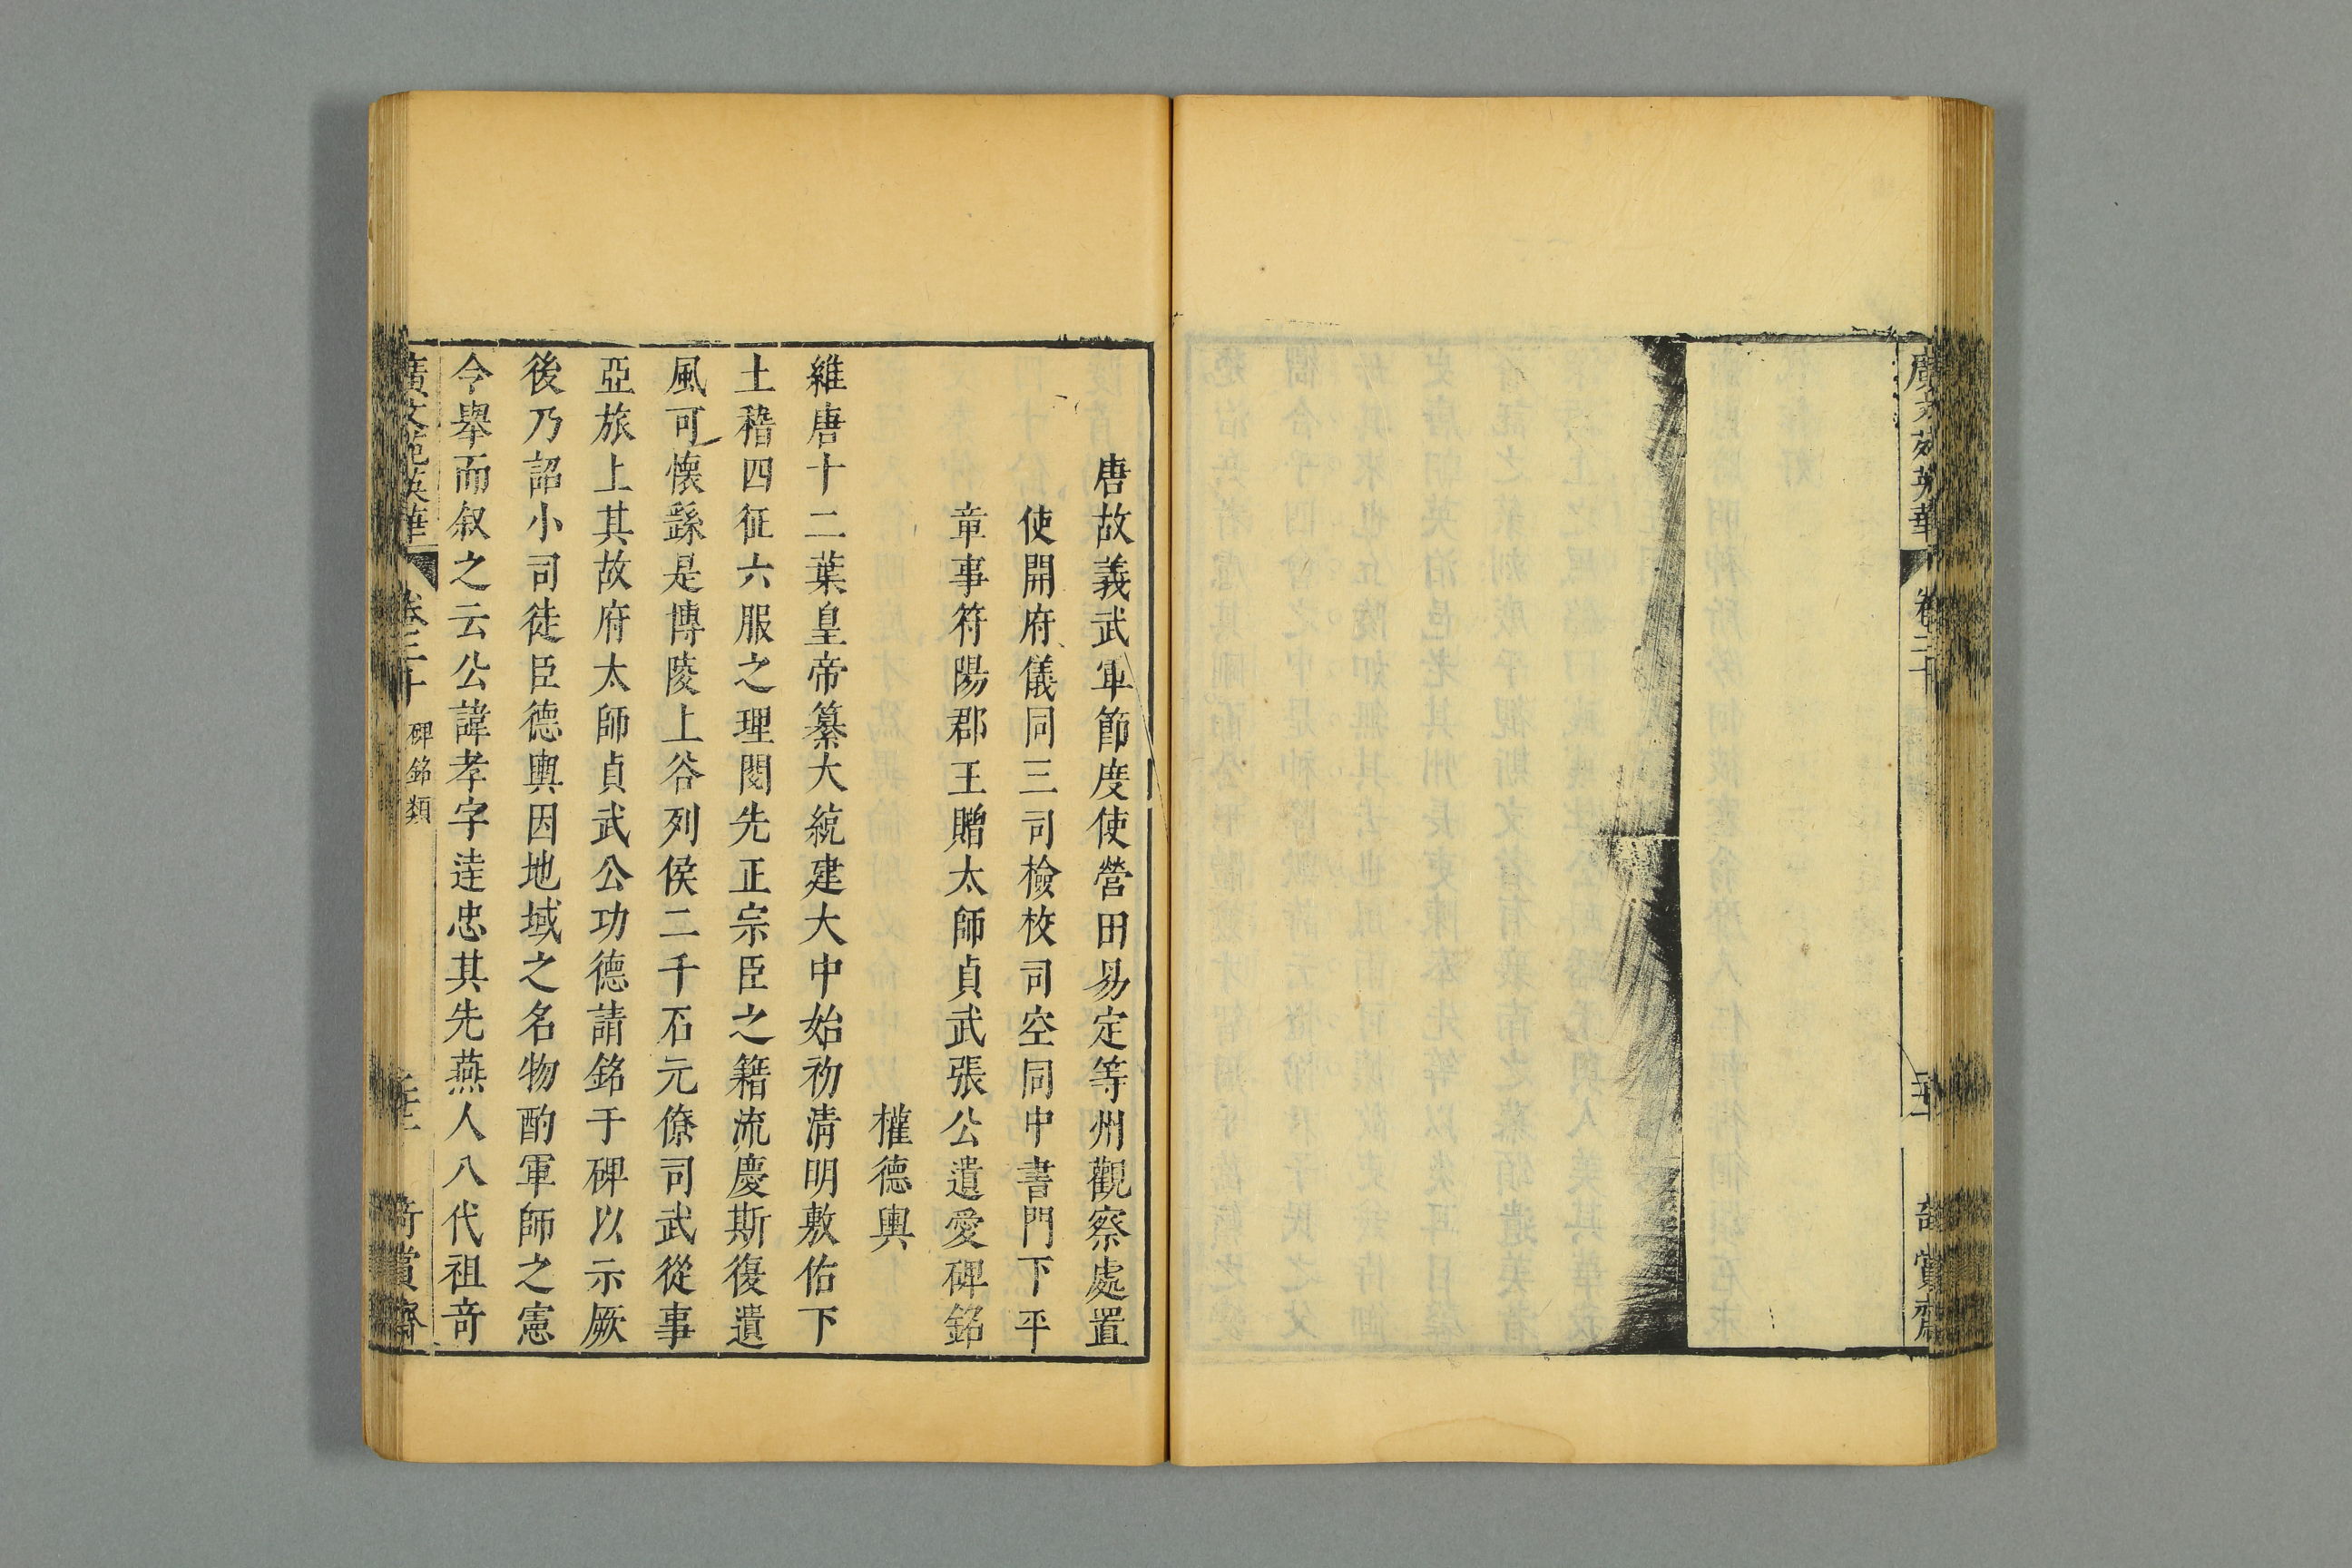 唐故義武軍節度使營田易定等州觀察處置
使開府儀同三司檢校司空同中書門下平
章事符陽郡王贈太師貞武張公遺愛碑銘
權德輿
維唐十二葉皇帝纂大統建大中始初清明敷佑下
土稽四征六服之理閱先正宗臣之籍流慶斯復遺
風可懷繇是博陵上谷列侯二千石元僚司武從事
亞旅上其故府太師貞武公功德請銘于碑以示厥
後乃詔小司徒臣德輿因地域之名物酌軍師之憲
今舉而叙之云公諱孝字逹忠其先燕人八代祖竒
廣文苑英華 卷二十 碑銘類
奇賞齋